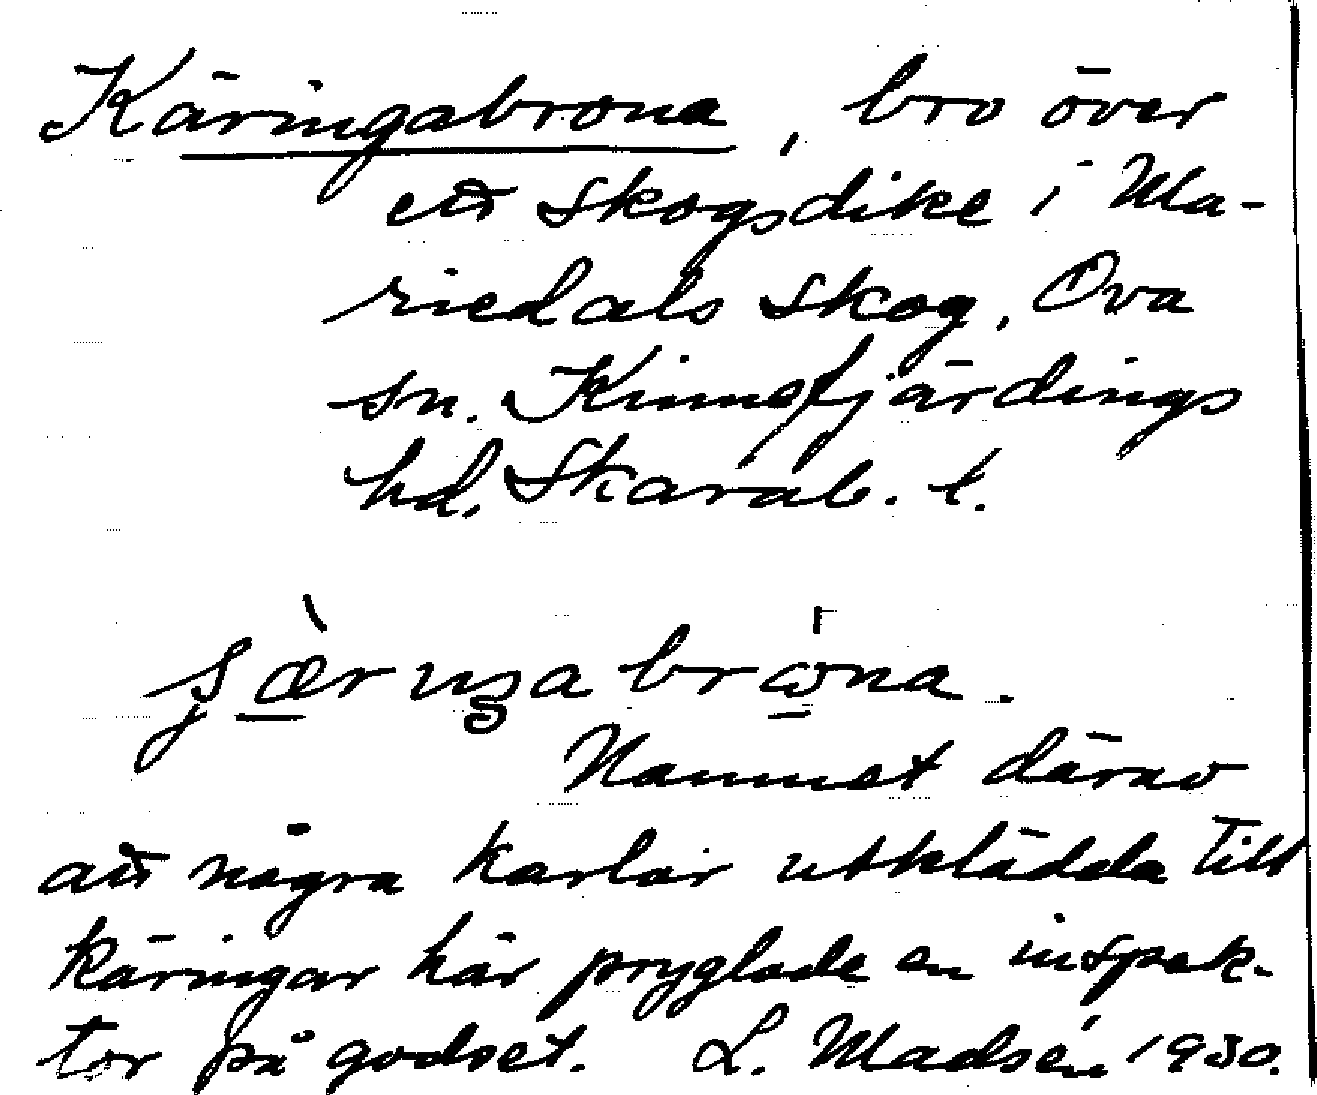 Käringabrona, bro över
ett skogsdike i Ma-
riedals skog, Ova
sn. Kinnefjärdings
hd, Skarab. l.
Namnet därav
att några karlar utklädda till
käringar här pryglade en inspek-
tor på godset. L. Madsén 1930.